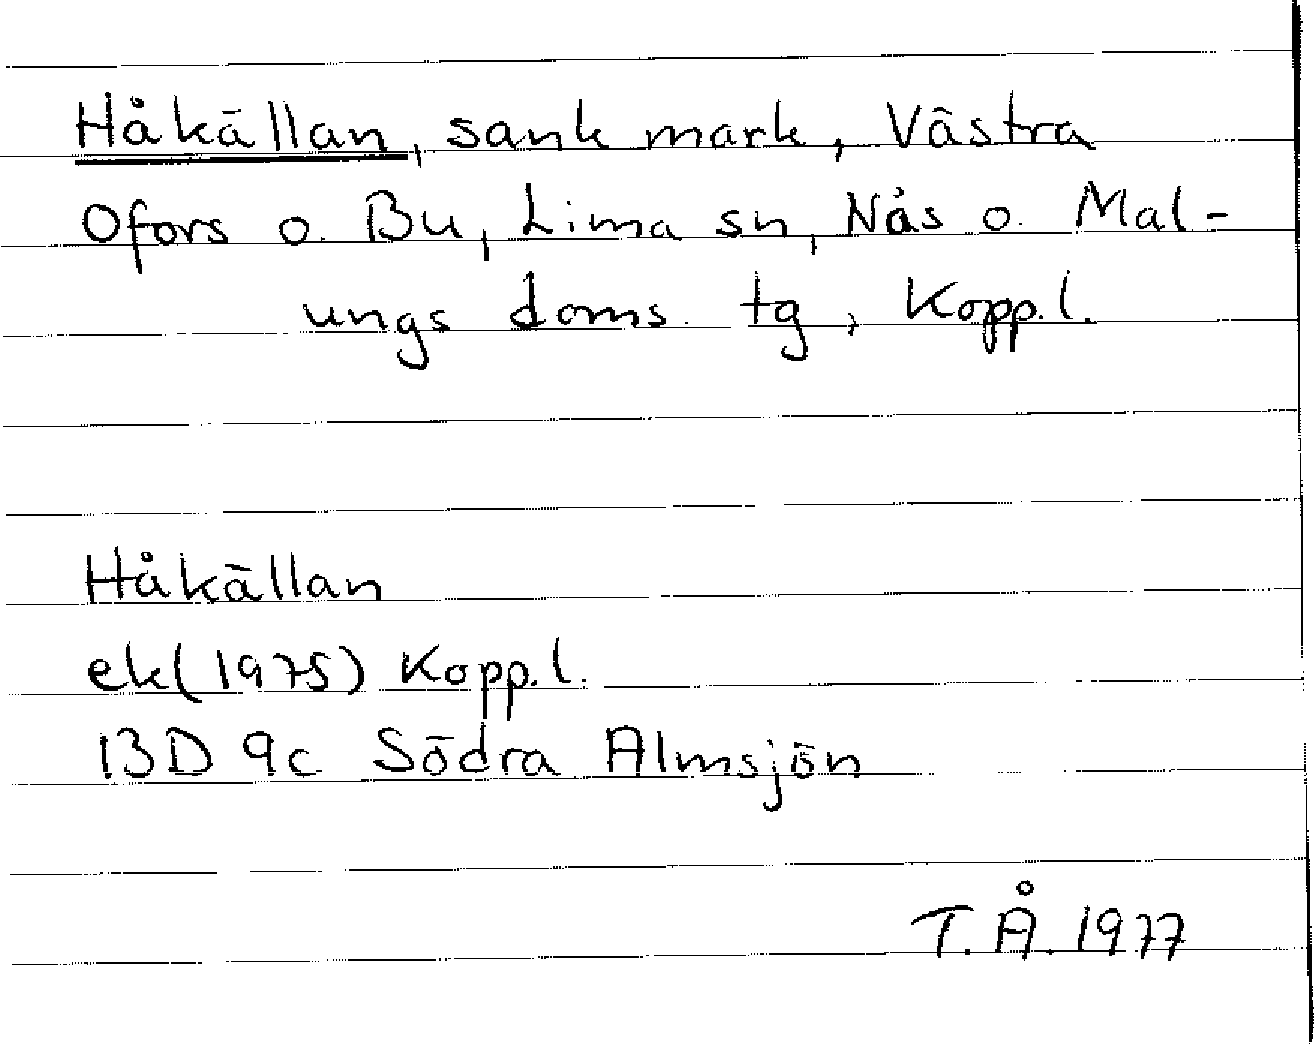 Håkällan, sank mark, Västra
Ofors o. Bu, Lima sn, Nås o. Mal-
ungs doms. tg, Kopp.l.
Håkällan
ek(1975) Kopp.l.
13D 9c Södra Almsjön
T.Å. 1977